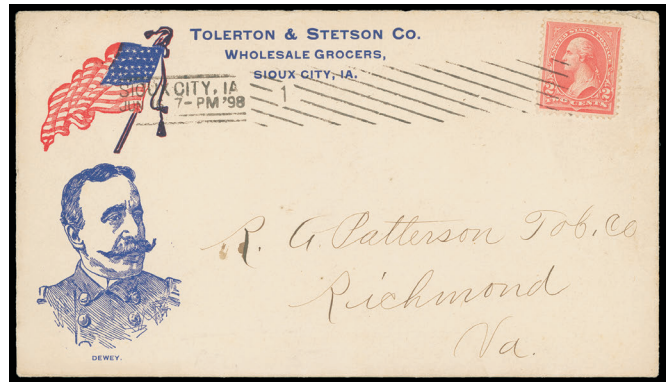 TOLERTON & STETSON CO.
WHOLESALE GROCERS,
SIOUX CITY, IA.
SIOUX CITY, IA
7-PM '98
1
2 2
TWO CENTS
R. A. Patterson Tob. Co
Richmond
Va.
DEWEY.